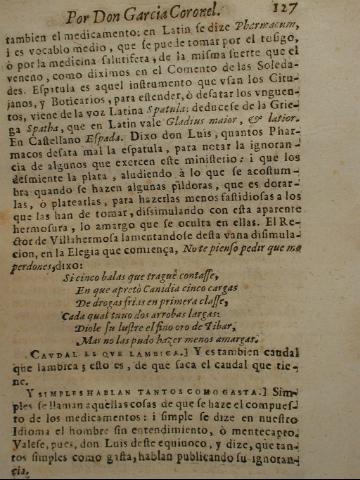 Por Don Garcia Coronel. 127
tambien el medicamento: en Latin se dize Pharmacum,
i es vocablo medio, que se puede tomar por el tosigo,
ò por la medicina salutifera, de la misma suerte que el
veneno, como diximos en el Comento de las Soleda-
des. Espatula es aquel instrumento que vsan los Ciru-
janos, y Boticarios, para estender, ò desatar los vnguen-
tos, viene de la voz Latina Spatula: deducese de la Grie-
ga Spatha, que en Latin vale Gladius maior, & latior.
En Castellano Espada. Dixo don Luis, quantos Phar-
macos desata mal la espatula, para notar la ignoran-
cia de algunos que exercen este ministerio: i que los
desmiente la plata, aludiendo à lo que se acostum-
bra quando se hazen algunas pildoras, que es dorar-
las, ò platearlas, para hazerlas menos fastidiosas a los
que las han de tomar, dissimulando con esta aparente
hermosura, lo amargo que se oculta en ellas. El Re-
ctor de Villahermosa lamentandose desta vana dissimula-
cion, en la Elegia que comiença, No te pienso pedir que me
perdones, dixo:
Si cinco balas que traguè contasse,
En que apretò Canidia cinco cargas
De drogas finas en primera classe,
Cada qual tuuo dos arrobas largas:
Diole su lustre el fino oro de Tibar,
Mas no las pudo hazer menos amargas.
CAVDAL EL QVE LAMBICA.] Y es tambien caudal
que lambica; esto es, de que saca el caudal que tie-
ne.
Y SIMPLES HABLAN TANTOS COMO GASTA.] Sim-
ples se llaman aquellas cosas de que se haze el compues-
to de los medicamentos: i simple se dize en nuestro
Idioma el hombre sin entendimiento, ò mentecapto.
Valese, pues, don Luis deste equiuoco, y dize, que tan-
tos simples como gasta, hablan publicando su ignoran-
cia.